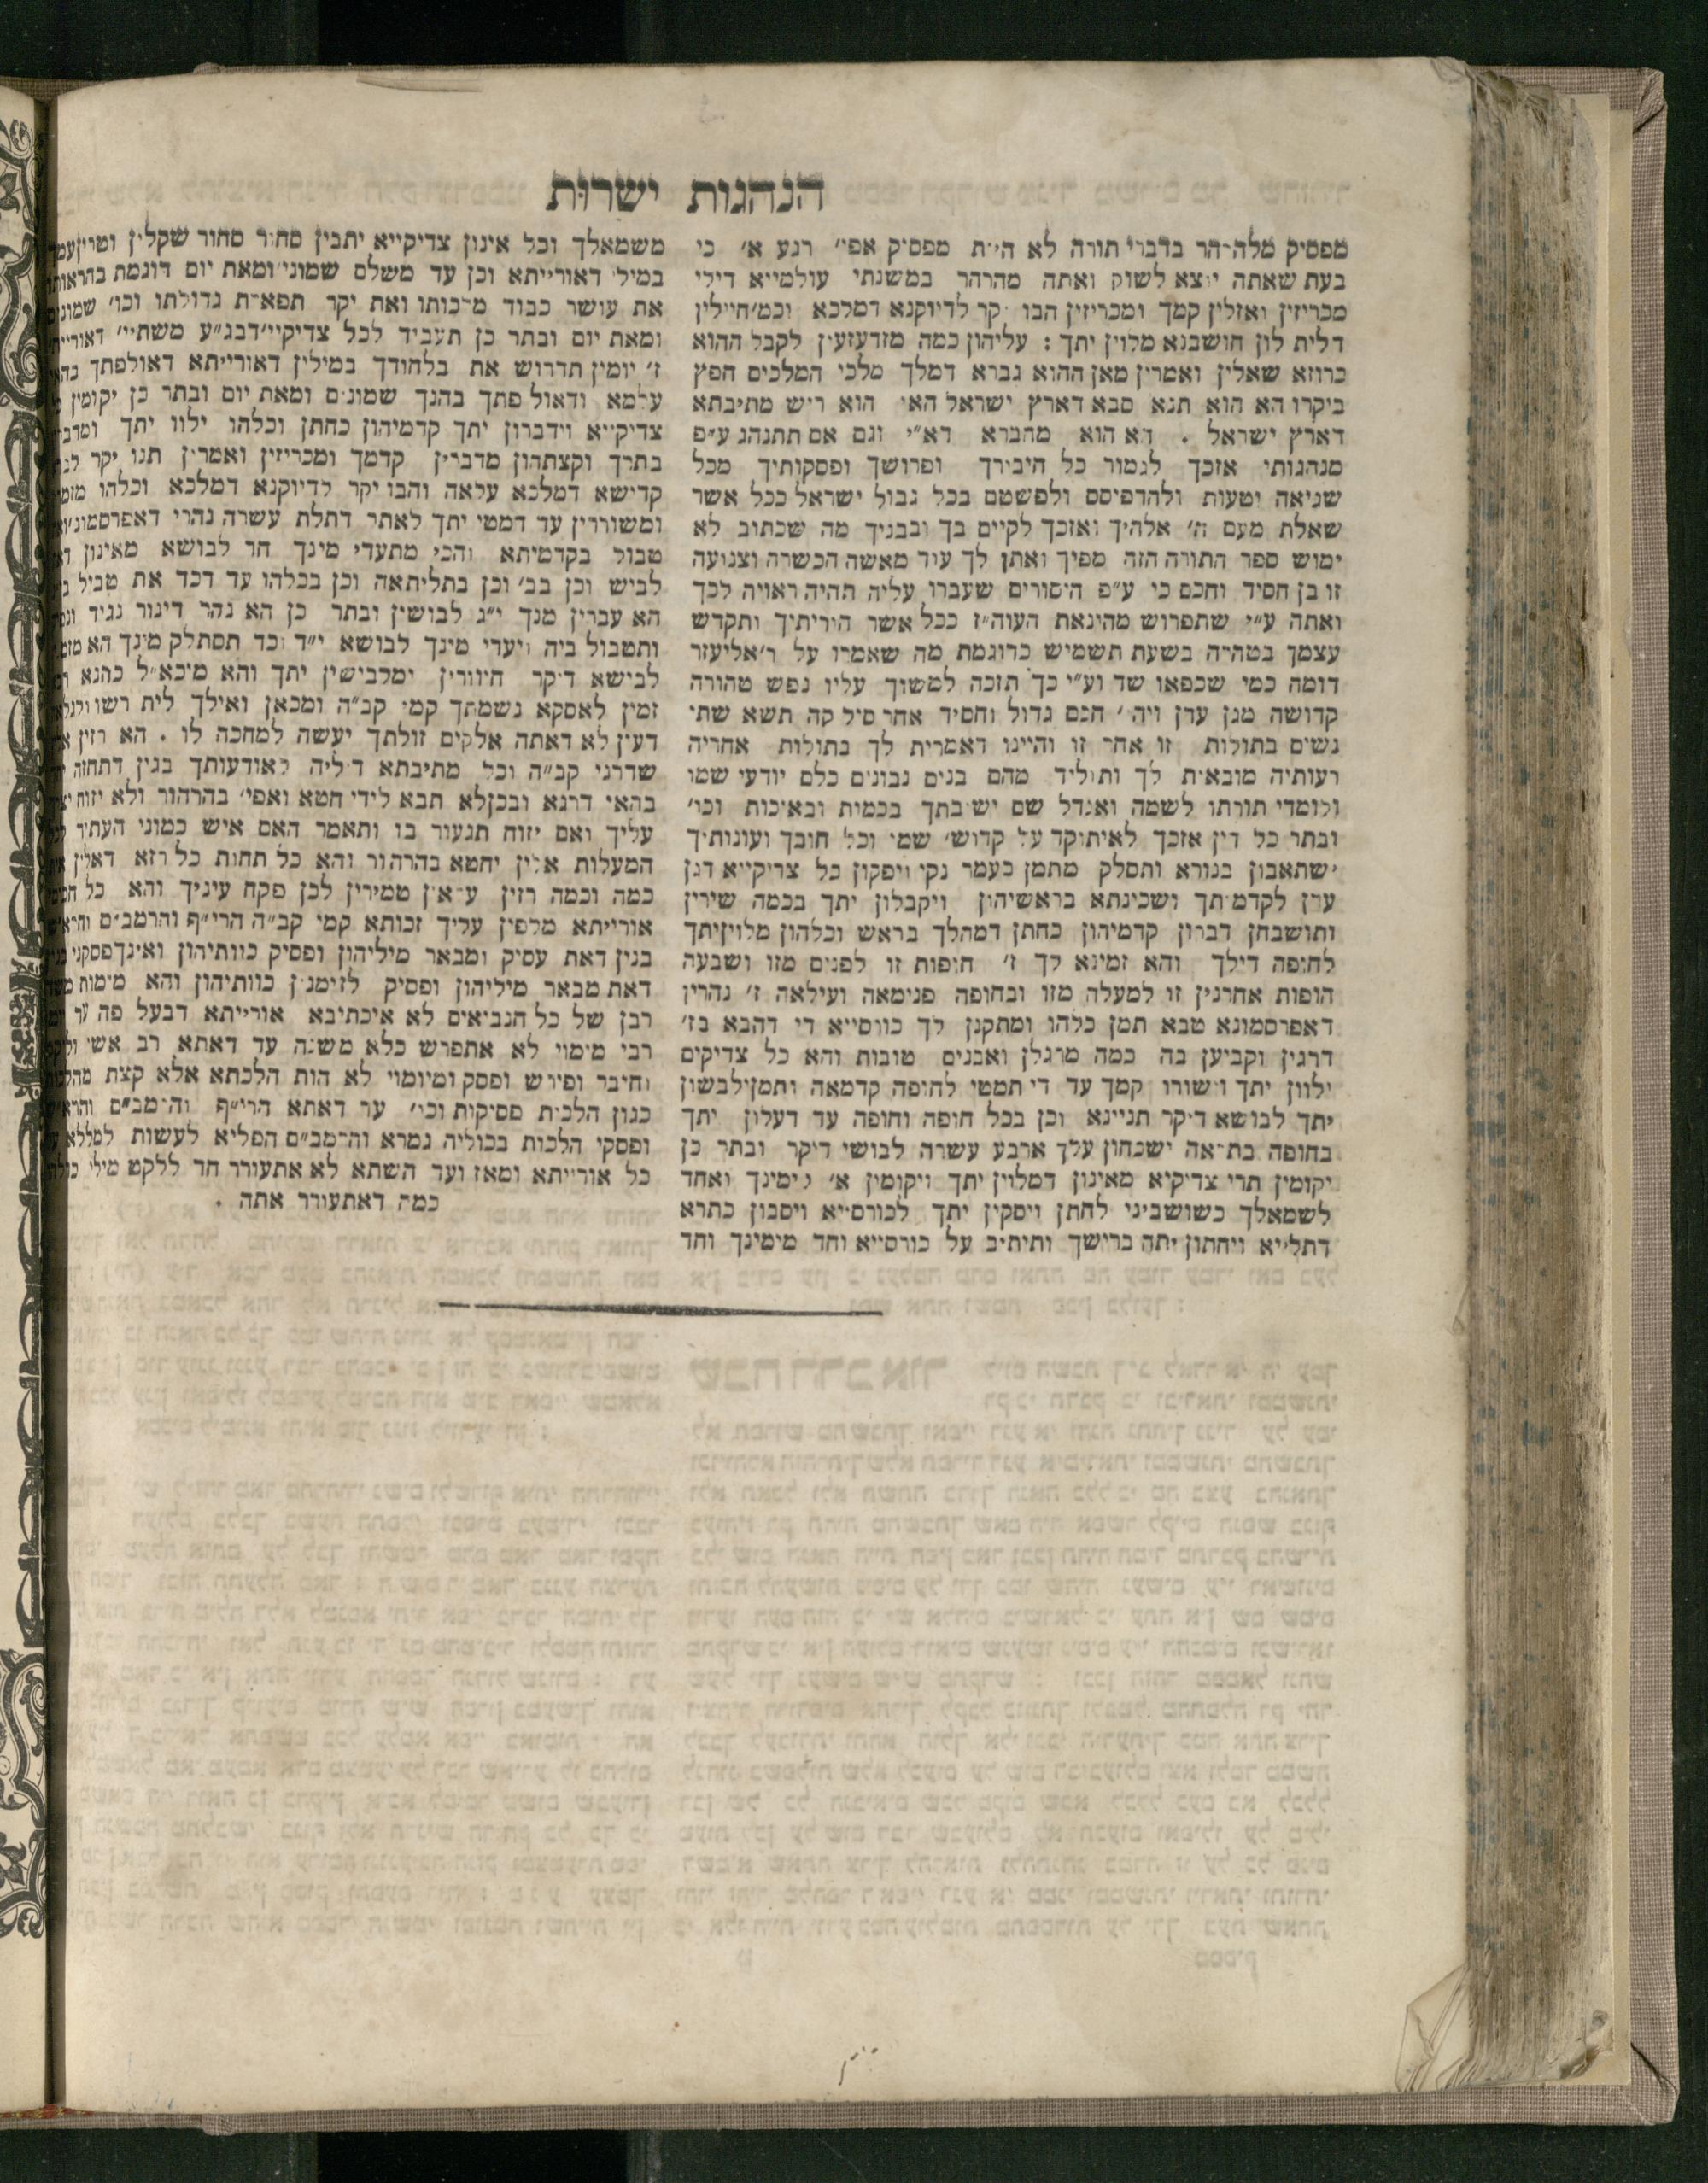 הנהגות ישרות
מפסיק מלהרהר בדברי תורה לא היית מפסיק אפי׳ רגע א׳ כי
בעת שאתה יוצא לשוק ואתה מהרהר במשנתי עולמייא דילי
מכריזין ואזלין קמך ומכריזין הבו יקר לדיוקנא דמלכא וכמ׳חיילין
דלית לון חושבנא מלוין יתך : עליהון כמה מזדעזעין לקבל ההוא
כרוזא שאלין ואמרין מאן ההוא גברא דמלך מלכי המלכים חפץ
ביקרו הא הוא תנא סבא דארץ ישראל האי הוא ריש מתיבתא
דארץ ישראל . דא הוא מחברא דא״י וגם אם תתנהג ע״פ
מנהגותי אזכך לגמור כל חיבורך ופרושך ופסקותיך מכל
שגיאה וטעות ולהדפיסם ולפשטם בכל גבול ישראל ככל אשר
שאלת מעם ה׳ אלהיך ואזכך לקיים בך ובבניך מה שכתוב לא
ימוש ספר התורה הזה מפיך ואתן לך עוד מאשה הכשרה וצנועה
זו בן חסיד וחכם כי ע״פ היסורים שעברו עליה תהיה ראויה לכך
ואתה ע״י שתפרוש מהינאת העוה״ז ככל אשר הוריתיך ותקדש
עצמך בטהרה בשעת תשמיש כדוגמת מה שאמרו על ר׳אליעזר
דומה כמי שכפאו שד וע״י כך תזכה למשוך עליו נפש טהורה
קדושה מגן עדן ויהי׳ חכם גדול וחסיד אחר סילקה תשא שתי
נשים בתולות זו אחר זו והיינו דאמרית לך בתולות אחריה
רעותיה מובאות לך ותוליד מהם בנים נבונים כלם יודעי שמו
ולומדי תורתו לשמה ואגדל שם ישיבתך בכמות ובאיכות וכו׳
ובתר כל דין אזכך לאיתוקד על קדוש׳ שמי וכל חובך ועונותיך
ישתאבון בנורא ותסלק מתמן כעמר נקי ויפקון כל צדיקייא דגן
עדן לקדמותך ושכינתא בראשיהון ויקבלון יתך בכמה שירין
ותושבחן דברון קדמיהון כחתן דמהלך בראש וכלהון מלויןיתך
לחופה דילך והא זמינא לך ז׳ חופות זו לפנים מזו ושבעה
חופות אחרנין זו למעלה מזו ובחופה פנימאה ועילאה ז׳ נהרין
דאפרסמונא טבא תמן כלהו ומתקנן לך כורסייא די דהבא בז׳
דרגין וקביען בה כמה מרגלן ואבנים טובות והא כל צדיקים
ילוון יתך וישורו קמך עד די תמטי לחופה קדמאה ותמןילבשון
יתך לבושא דיקר תניינא וכן בכל חופה וחופה עד דעלון יתך
בחופה בתראה ישנחון עלך ארבע עשרה לבושי דיקר ובתר כן
יקומין תרי צדיקיא מאינון דמלוין יתך ויקומין א׳ לימינך ואחד
לשמאלך כשושביני לחתן ויסקין יתך לכורסייא ויסבון כתרא
דתלייא ויחתון יתה ברישך ותיתיב על כורסייא וחד מימינך וחד
משמאלך וכל אינון צדיקייא יתבין סחור סחור שקלין וטרין
במילי דאורייתא וכן עד משלם שמוני׳ומאת יום דוגמת
את עושר כבוד מלכותו ואת יקר תפארת גדולתו וכו׳
ומאת יום ובתר כן תעביד לכל צדיקיי׳דבג״ע משתיי׳
ז׳ יומין תדרוש את בלחודך במילין דאורייתא דאולפתך
עלמא ודאולפתך בהנך שמונים ומאת יום ובתר כן יקומין
צדיקייא וידברון יתך קדמיהון כחתן וכלהו ילוו יתך
בתרך וקצתהון מדברין קדמך ומכריזין ואמרין תנו יקר
קדישא דמלכא עלאה והבו יקר לדיוקנא דמלכא וכלהו
ומשוררין עד דמטי יתך לאתר דתלת עשרה נהרי
טבול בקדמיתא והכי מתעדי מינך חד לבושא מאינון
לביש וכן בב׳ וכן בתליתאה וכן בכלהו עד דכד את טביל
הא עברין מנך י״ג לבושין ובתר כן הא נהר דינור נגיד
ותטבול ביה ויעדי מינך לבושא י״ד וכד תסתלק מינך
לבישא דיקר חיוורין ימלבישין יתך והא מיכא״ל כהנא
זמין לאסקא נשמתך קמי קב״ה ומכאן ואילך לית רשו
דעין לא דאתה אלקים זולתך יעשה למחכה לו . הא רזין
שדרגי קב״ה וכל מתיבתא דיליה לאודעותך בגין דתחזה
בהאי דרגא ובכןלא תבא לידי חטא ואפי׳ בהרהור ולא
עליך ואם יזוח תגעור בו ותאמר האם איש כמוני העתיד
המעלות אלין יחטא בהרהור והא כל תחות כל רזא דאלין
כמה וכמה רזין עלאין טמירין לכן פקח עיניך והא כל
אורייתא מלפין עליך זכותא קמי קב״ה הרי״ף והרמב״ם
בגין דאת עסיק ומבאר מיליהון ופסיק כוותיהון
דאת מבאר מיליהון ופסיק לזימנין כוותיהון והא מימות
רבן של כל הנביאים לא איכתיבא אורייתא דבעל פה עד
רבי מימוי לא אתפרש כלא משנה עד דאתא רב אשי
וחיבר ופירש ופסק ומיומוי לא הות הלכתא אלא קצת
כגון הלכות פסיקות וכו׳ עד דאתא הרי״ף והרמב״ם
ופסקי הלכות בכוליה גמרא והרמב״ם הפליא לעשות
כל אורייתא ומאז ועד השתא לא אתעורר חד ללקט מילי
כמה דאתעורר אתה .